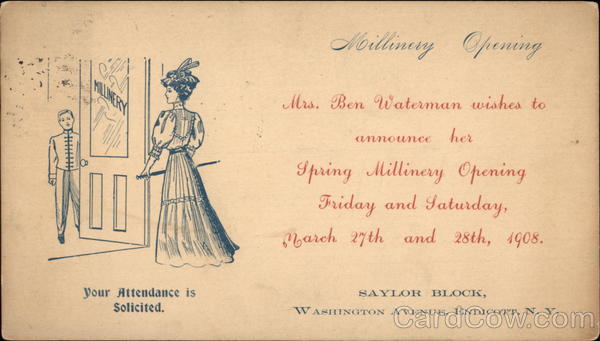 Millinery Opening
MILLINERY
Mrs. Ben Waterman wishes to
announce her
Spring Millinery Opening
Friday and Saturday,
March 27th and 28th, 1908.
Your Attendance is
Solicited.
SAYLOR BLOCK,
WASHINGTON AVENUE, ENDICOTT, N. Y.
CardCow.com